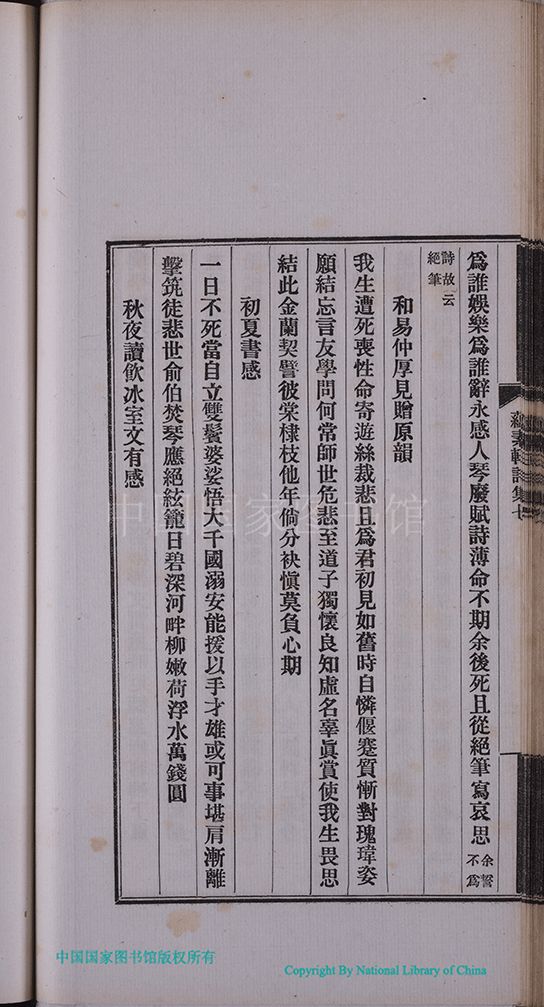 為誰娛樂為誰辭永感人琴廢賦詩薄命不期余後死且從絕筆寫哀思余誓不為
詩故云絕筆
和易仲厚見贈原韻
我生遭死喪性命寄遊絲裁悲且為君初見如舊時自憐偃蹇質慚對瑰瑋姿
願結忘言友學問何常師世危悲至道子獨懷良知虛名辜眞賞使我生畏思
結此金蘭契譬彼棠棣枝他年倘分袂愼莫負心期
初夏書感
一日不死當自立雙鬢婆娑悟大千國溺安能援以手才雄或可事堪肩漸離
擊筑徒悲世俞伯焚琴應絕絃籠日碧深河畔柳嫩荷浮水萬錢圓
秋夜讀飲冰室文有感
詩集七
中国国家图书馆
中国国家图书馆版权所有
Copyright By National Library of China